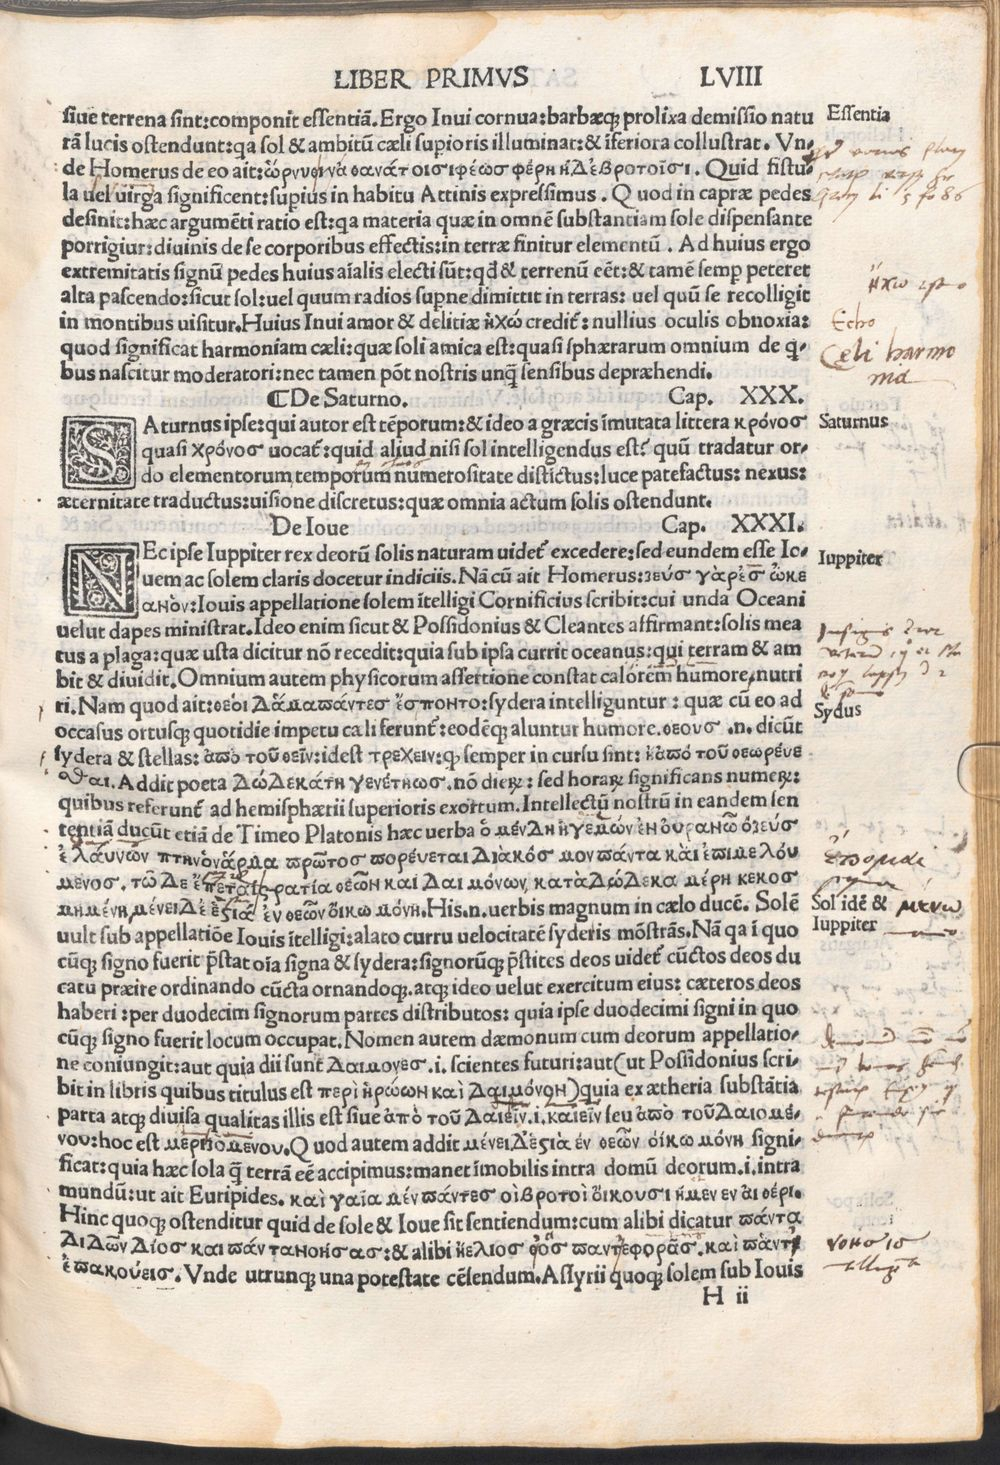 LIBER PRIMVS LVIII
siue terrena sint:componit essentiã. Ergo Inui cornua:barbæq; prolixa demissio natu
rã lucis ostendunt:qa sol & ambitũ cæli supioris illuminat:& iferiora collustrat. Vn-
de Homerus de eo ait:ὡρνυθινὰ θανάτοισιφέωσ φέρη ηΔἐβροτοῖσι. Quid fistu-
la uel uirga significent:supius in habitu Attinis expressimus. Quod in capræ pedes
desinit:hæc argumẽti ratio est:qa materia quæ in omnẽ substantiam sole dispensante
porrigiur:diuinis de se corporibus effectis:in terræ finitur elementũ. Ad huius ergo
extremitatis signũ pedes huius aialis electi sũt:qd & terrenũ eẽt:& tamẽ semp peteret
alta pascendo:sicut sol:uel quum radios supne dimittit in terras: uel quũ se recolligit
in montibus uisitur.Huius Inui amor & delitiæ ἠχώ credit̃: nullius oculis obnoxia:
quod significat harmoniam cæli:quæ soli amica est:quasi sphærarum omnium de q-
bus nascitur moderatori:nec tamen põt nostris unq̃ sensibus depræhendi.
Essentia
Echo
Celi harmo
nia
De Saturno. Cap. XXX.
SAturnus ipse:qui autor est tẽporum:& ideo a græcis imutata littera κρόνοσ
quasi χρόνοσ uocat̃:quid aliud nisi sol intelligendus est? quũ tradatur or-
do elementorum temporum numerositate distictus:luce patefactus: nexus:
æternitate traductus:uisione discretus:quæ omnia actum solis ostendunt.
Saturnus
De Ioue Cap. XXXI.
NEc ipse Iuppiter rex deorũ solis naturam uidet̃ excedere:sed eundem esse Io-
uem ac solem claris docetur indiciis. Nã cũ ait Homerus:ζεύσ γὰρἐσ ὠκε
ανὸν:Iouis appellatione solem ĩtelligi Cornificius scribit:cui unda Oceani
uelut dapes ministrat.Ideo enim sicut & Possidonius & Cleantes affirmant:solis mea
tus a plaga:quæ usta dicitur nõ recedit:quia sub ipsa currit oceanus:qui terram & am
bit & diuidit.Omnium autem physicorum assertione constat calorem humore nutri
ri.Nam quod ait:θεοὶ Δἁμαπάντεσ ἑσποντο:sydera intelliguntur: quæ cũ eo ad
occasus ortusq; quotidie impetu cæli ferunt̃:eodẽq; aluntur humore.θεουσ .n. dicũt
sydera & stellas: ἀπὸ τοῦ θεῖν:idest τρεχειν:q; semper in cursu sint: ἠἀπό τοῦ θεωρένε
σθαι.Addit poeta Δώδεκάτη γενέτηωσ.nõ dierꝝ: sed horarꝝ significans numerꝝ:
quibus referunt̃ ad hemisphærii superioris exortum.Intellectũ nostrũ in eandem sen
tentiã ducũt etiã de Timeo Platonis hæc uerba ὁ μὲνδη ἡγεμών ἐν ουρανῶ όζεύσ
ἐλαύνων πτηνὸνάρμα πρῶτοσ πορένεται Διακόσ μονπάντα κὰι ἐπιμελόυ
μενοσ.τῶδε ἐπεταιςρατία θεῶν καὶ Δαιμόνων κατὰΔώδεκα μέρη κεκοσ
μημένη,μένειΔὲ ἑςία ἐν θεῶν ὄικω μόνη.His.n.uerbis magnum in cælo ducẽ. Solẽ
uult sub appellatiõe Iouis ĩtelligi:alato curru uelocitatẽ syderis mõstrãs.Nã qa ĩ quo
cũq; signo fuerit p̃stat oĩa signa & sydera:signorũq; p̃stites deos uidet̃ cũctos deos du
catu præire ordinando cũcta ornandoq;.atq; ideo uelut exercitum eius: cæteros deos
haberi :per duodecim signorum partes distributos: quia ipse duodecimi signi in quo
cũq; signo fuerit locum occupat. Nomen autem dæmonum cum deorum appellatio-
ne coniungit:aut quia dii sunt Δαιμονεσ.i.scientes futuri:aut(ut Possidonius scri-
bit in libris quibus titulus est περὶ ἡρώων καὶ Δαιμόνων)quia ex ætheria substãtia
parta atq; diuisa qualitas illis est siue ἀπὸ τοῦ Δαιεῖν.i.καιεῖν seu ἀπὸ τοῦΔαιομέ-
νου:hoc est μερηομενου.Quod autem addit μένειΔἐςιὰ ἐν θεῶν όίκω μόνη signi-
ficat:quia hæc sola q̃ terrã eẽ accipimus:manet ĩmobilis intra domũ deorum.i.intra
mundũ:ut ait Euripides.καὶ γαῖα μὲν πάντεσ οἱβροτοὶ ὄικουσι ημεν εν ἀι θέρι.
Hinc quoq; ostenditur quid de sole & Ioue sit sentiendum:cum alibi dicatur πάντα
ΔιΔῶν Δίοσ καιπάνταΝοήσασ:& alibi ἠελιοσ φόσ παντἐφορᾶσ.καὶ πάντ
ἐπακούεισ. Vnde utrunq; una potestate cẽsendum.Assyrii quoq; solem sub Iouis
H ii
Iuppiter
Sydus
Sol idẽ &
Iuppiter
μενω